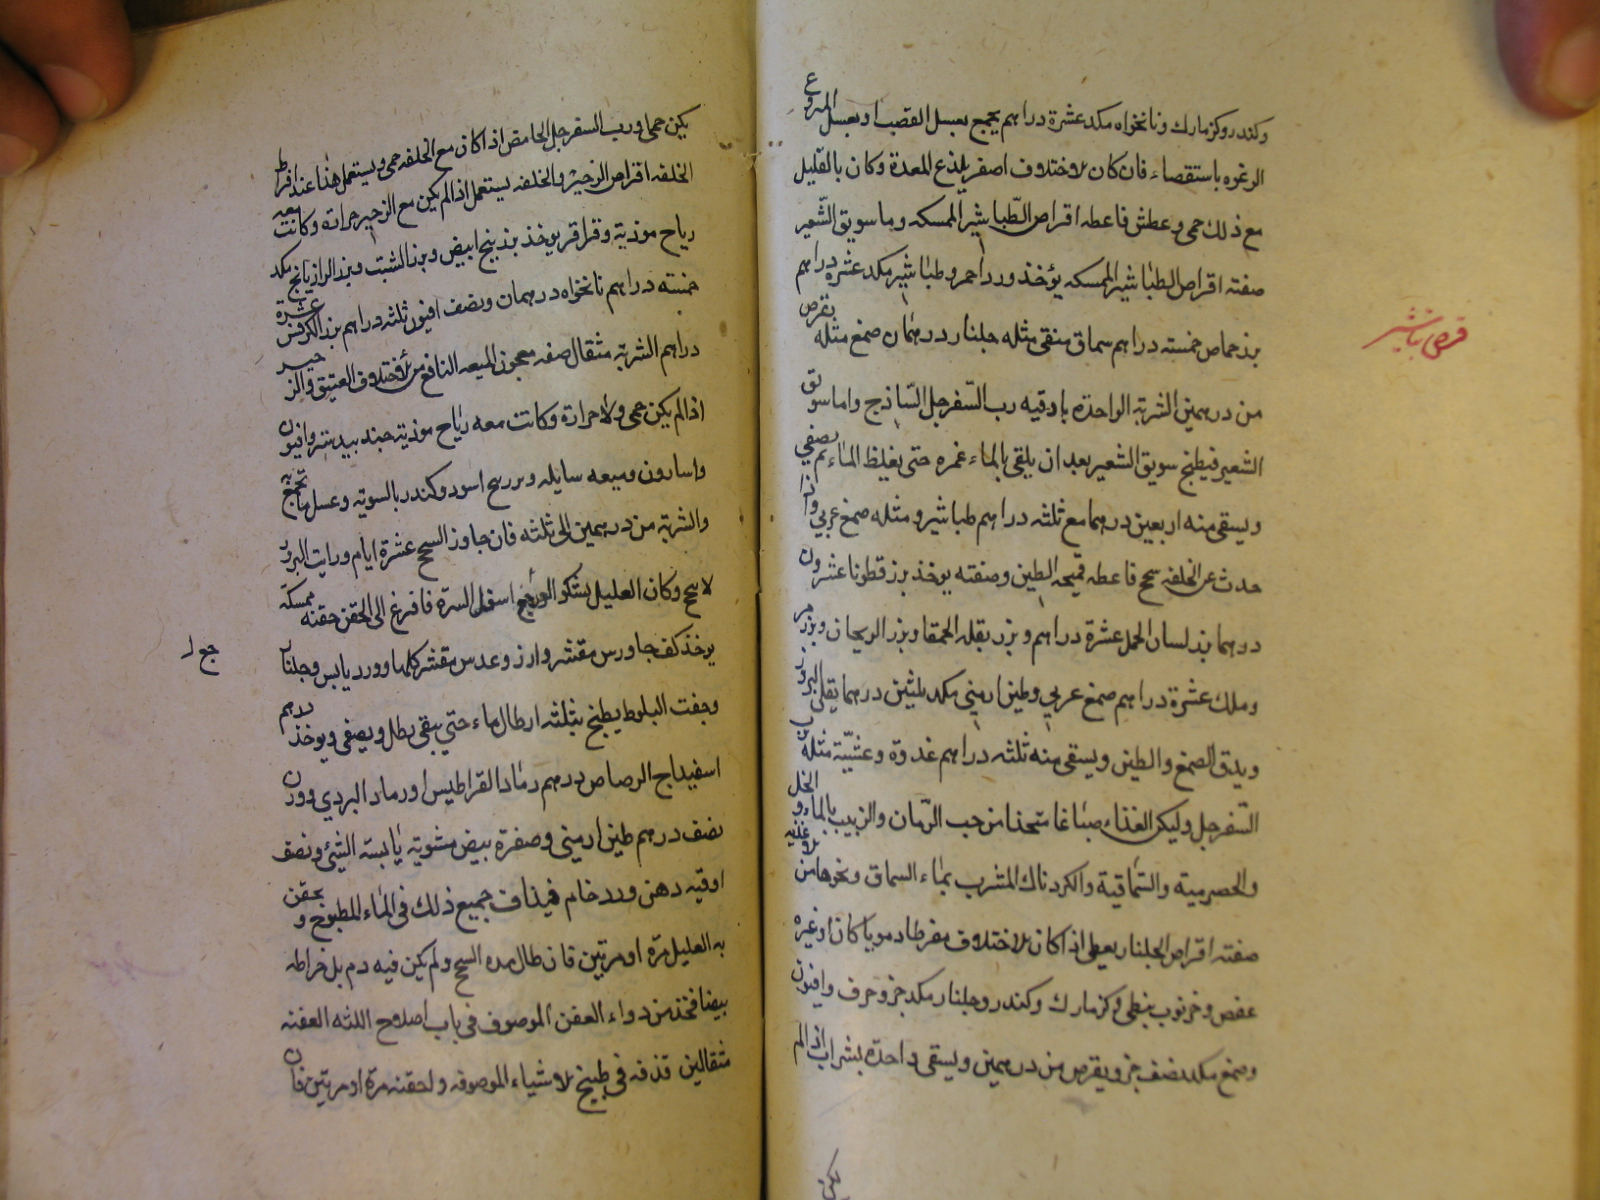 وكندر وكزمارك ونانخواه مكد عشرة دراهم يجمع بعسل القصب او بعسل المنزوع
الرغوه باستقصاء فان كان الاختلاف اصفر يلذع المعدة وكان بالقليل
مع ذلك حمى وعطش فاعطه اقراص الطباشير الممسكه وماء سويق الشعير
صفته اقراص الطباشير الممسكه يؤخذ ورد احمر وطباشير مكد عشرة دراهم
بزر حماض خمسته دراهم سماق منقى مثله جلنار درهمان صمغ مثله يقرص
من درهمين الشربة الواحدة باوقيه رب السفرجل الساذج واما سويق
الشعير فيطبخ سويق الشعير بعد ان يلقى بالماء غمره حتى يغلظ الماء ثم يصفي
ويسقى منه اربعين درهما مع ثلثه دراهم طباشير ومثله صمغ عربي واذا
حدث عن الخلفه سحج فاعطه قميحه الطين وصفته يوخذ بزر قطونا عشرون
درهما بزر لسان الحمل عشرة دراهم وبزر بقله الحمقا وبزر الريحان وبزر مر
وملك عشرة دراهم صمغ عربي وطين ارمني مكد ثلثين درهما يقلى البزور
ويدق الصمغ والطين ويسقى منه ثلثه دراهم غدوة وعشية مثله برب
السفرجل وليكن الغذاء صباغا متخذا من حب الرمان والزبيب بالماء والخل
والحصرمية والسماقية والكردناك المشرب بماء السماق ونحوها من الاغذيه
صفته اقراص الجلنار يعطى اذا كان الاختلاف مفرطا دمويا كان او غيره
عفص وخرنوب نبطي وكزمارك وكندر وجلنار مكد جزو حرف وافيون
وصمغ مكد نصف جزو يقرص من درهمين ويسقى واحدة بشراب اذا لم
يكن
قرص تباشير
يكن حمى او رب السفرجل الحامض اذا كان مع الخلفه حمى ويستعمل هذا عند افراط
الخلفه اقراص الزحير والخلفه يستعمل اذا لم يكن مع الزحير حرارة وكانت معه
رياح موذية وقراقر يوخذ بزر بنج ابيض وبزر الشبت وبزر الرازيانج مكد
خمسته دراهم نانخواه درهمان ونصف افيون ثلثه دراهم بزر الكرفس عشرة
دراهم الشربة مثقال صفه معجون الميعه النافع من الاختلاف العتيق والزحير
اذا لم يكن حمى ولا حرارة وكانت معه رياح موذية جندبيدستر وافيون
واسارون وميعه سايله وبزر بنج اسود وكندر بالسوية وعسل ما تجمع به
والشربة من درهمين الى ثلثه فان جاوز السحج عشرة ايام ورايت البزور
لا تنجح وكان العليل يشكو الوجع اسفل السرة فافزع الى الحقن حقنه ممسكة
يوخذ كف جاورس مقشر وارز وعدس مقشر كلها وورد يابس وجلنار
وجفت البلوط يطبخ بثلثه ارطال ماء حتى يبقى رطل ويصفى ويوخذ درهم
اسفيداج الرصاص درهم رماد القراطيس او رماد البردي ووزن
نصف درهم طين ارمني وصفرة بيض مشوية يابسة الشئ ونصف
اوقيه دهن ورد خام فيذاف جميع ذلك في الماء المطبوخ ويحقن
به العليل مرة او مرتين فان طال مدة السحج ولم يكن فيه دم بل خراطه
بيضا فخذ من دواء العفن الموصوف في باب اصلاح اللثه العفنه
مثقالين قذفه في طبيخ الاشياء الموصوفه واحقنه مرة او مرتين فان